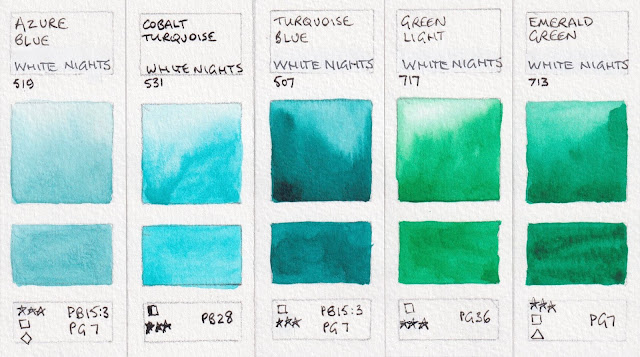 AZURE
BLUE
WHITE NIGHTS
519
PB15:3
PG7
COBALT
TURQUOISE
WHITE NIGHTS
531
PB28
TURQUOISE
BLUE
WHITE NIGHTS
507
PB15:3
PG7
GREEN
LIGHT
WHITE NIGHTS
717
PG36
EMERALD
GREEN
WHITE NIGHTS
713
PG7